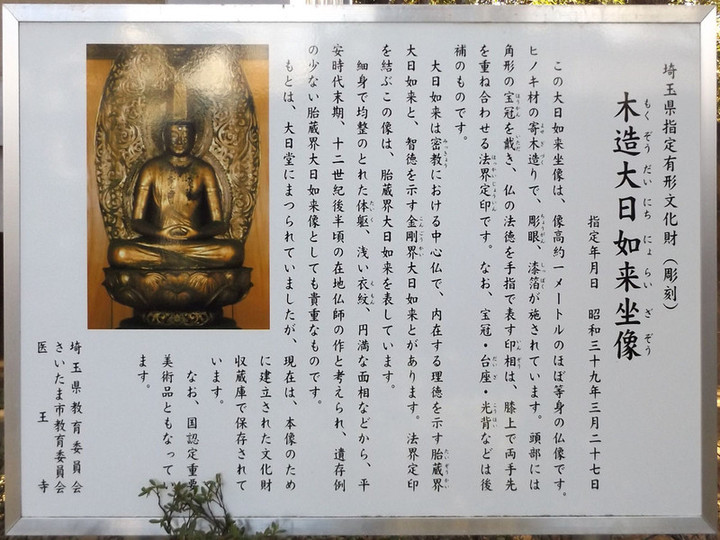 埼玉県指定有形文化財（彫刻）
木造大日如来坐像
もくぞうだいにちにょらいざぞう
指定年月日　昭和三十九年三月二十七日
この大日如来坐像は、像高約一メートルのほぼ等身の仏像です。
ヒノキ材の寄木造りで、彫眼、漆箔が施されています。頭部には
角形の宝冠を戴き、仏の法徳を手指で表す印相は、膝上で両手先
を重ね合わせる法界定印です。なお、宝冠・台座・光背などは後
補のものです。
大日如来は密教における中心仏で、内在する理徳を示す胎蔵界
大日如来と、智徳を示す金剛界大日如来とがあります。法界定印
を結ぶこの像は、胎蔵界大日如来を表しています。
細身で均整のとれた体躯、浅い衣紋、円満な面相などから、平
安時代末期、十二世紀後半頃の在地仏師の作と考えられ、遺存例
の少ない胎蔵界大日如来像としても貴重なものです。
もとは、大日堂にまつられていましたが、現在は、本像のため
に建立された文化財
収蔵庫で保存されて
います。
なお、国認定重要
美術品ともなって
ます。
埼玉県教育委員会
さいたま市教育委員会
医王寺